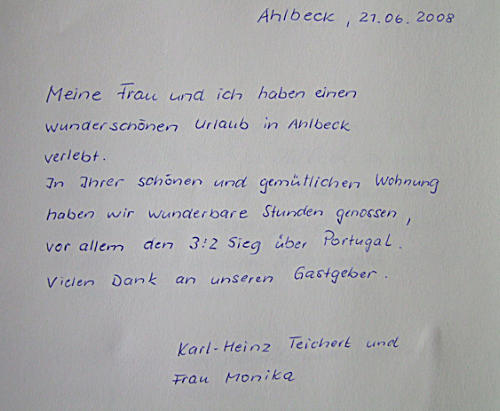 Ahlbeck, 21.06.2008
Meine Frau und ich haben einen
wunderschönen Urlaub in Ahlbeck
verlebt.
In Ihrer schönen und gemütlichen Wohnung
haben wir wunderbare Stunden genossen,
vor allem den 3:2 Sieg über Portugal.
Vielen Dank an unseren Gastgeber.
Karl-Heinz Teichert und
Frau Monika